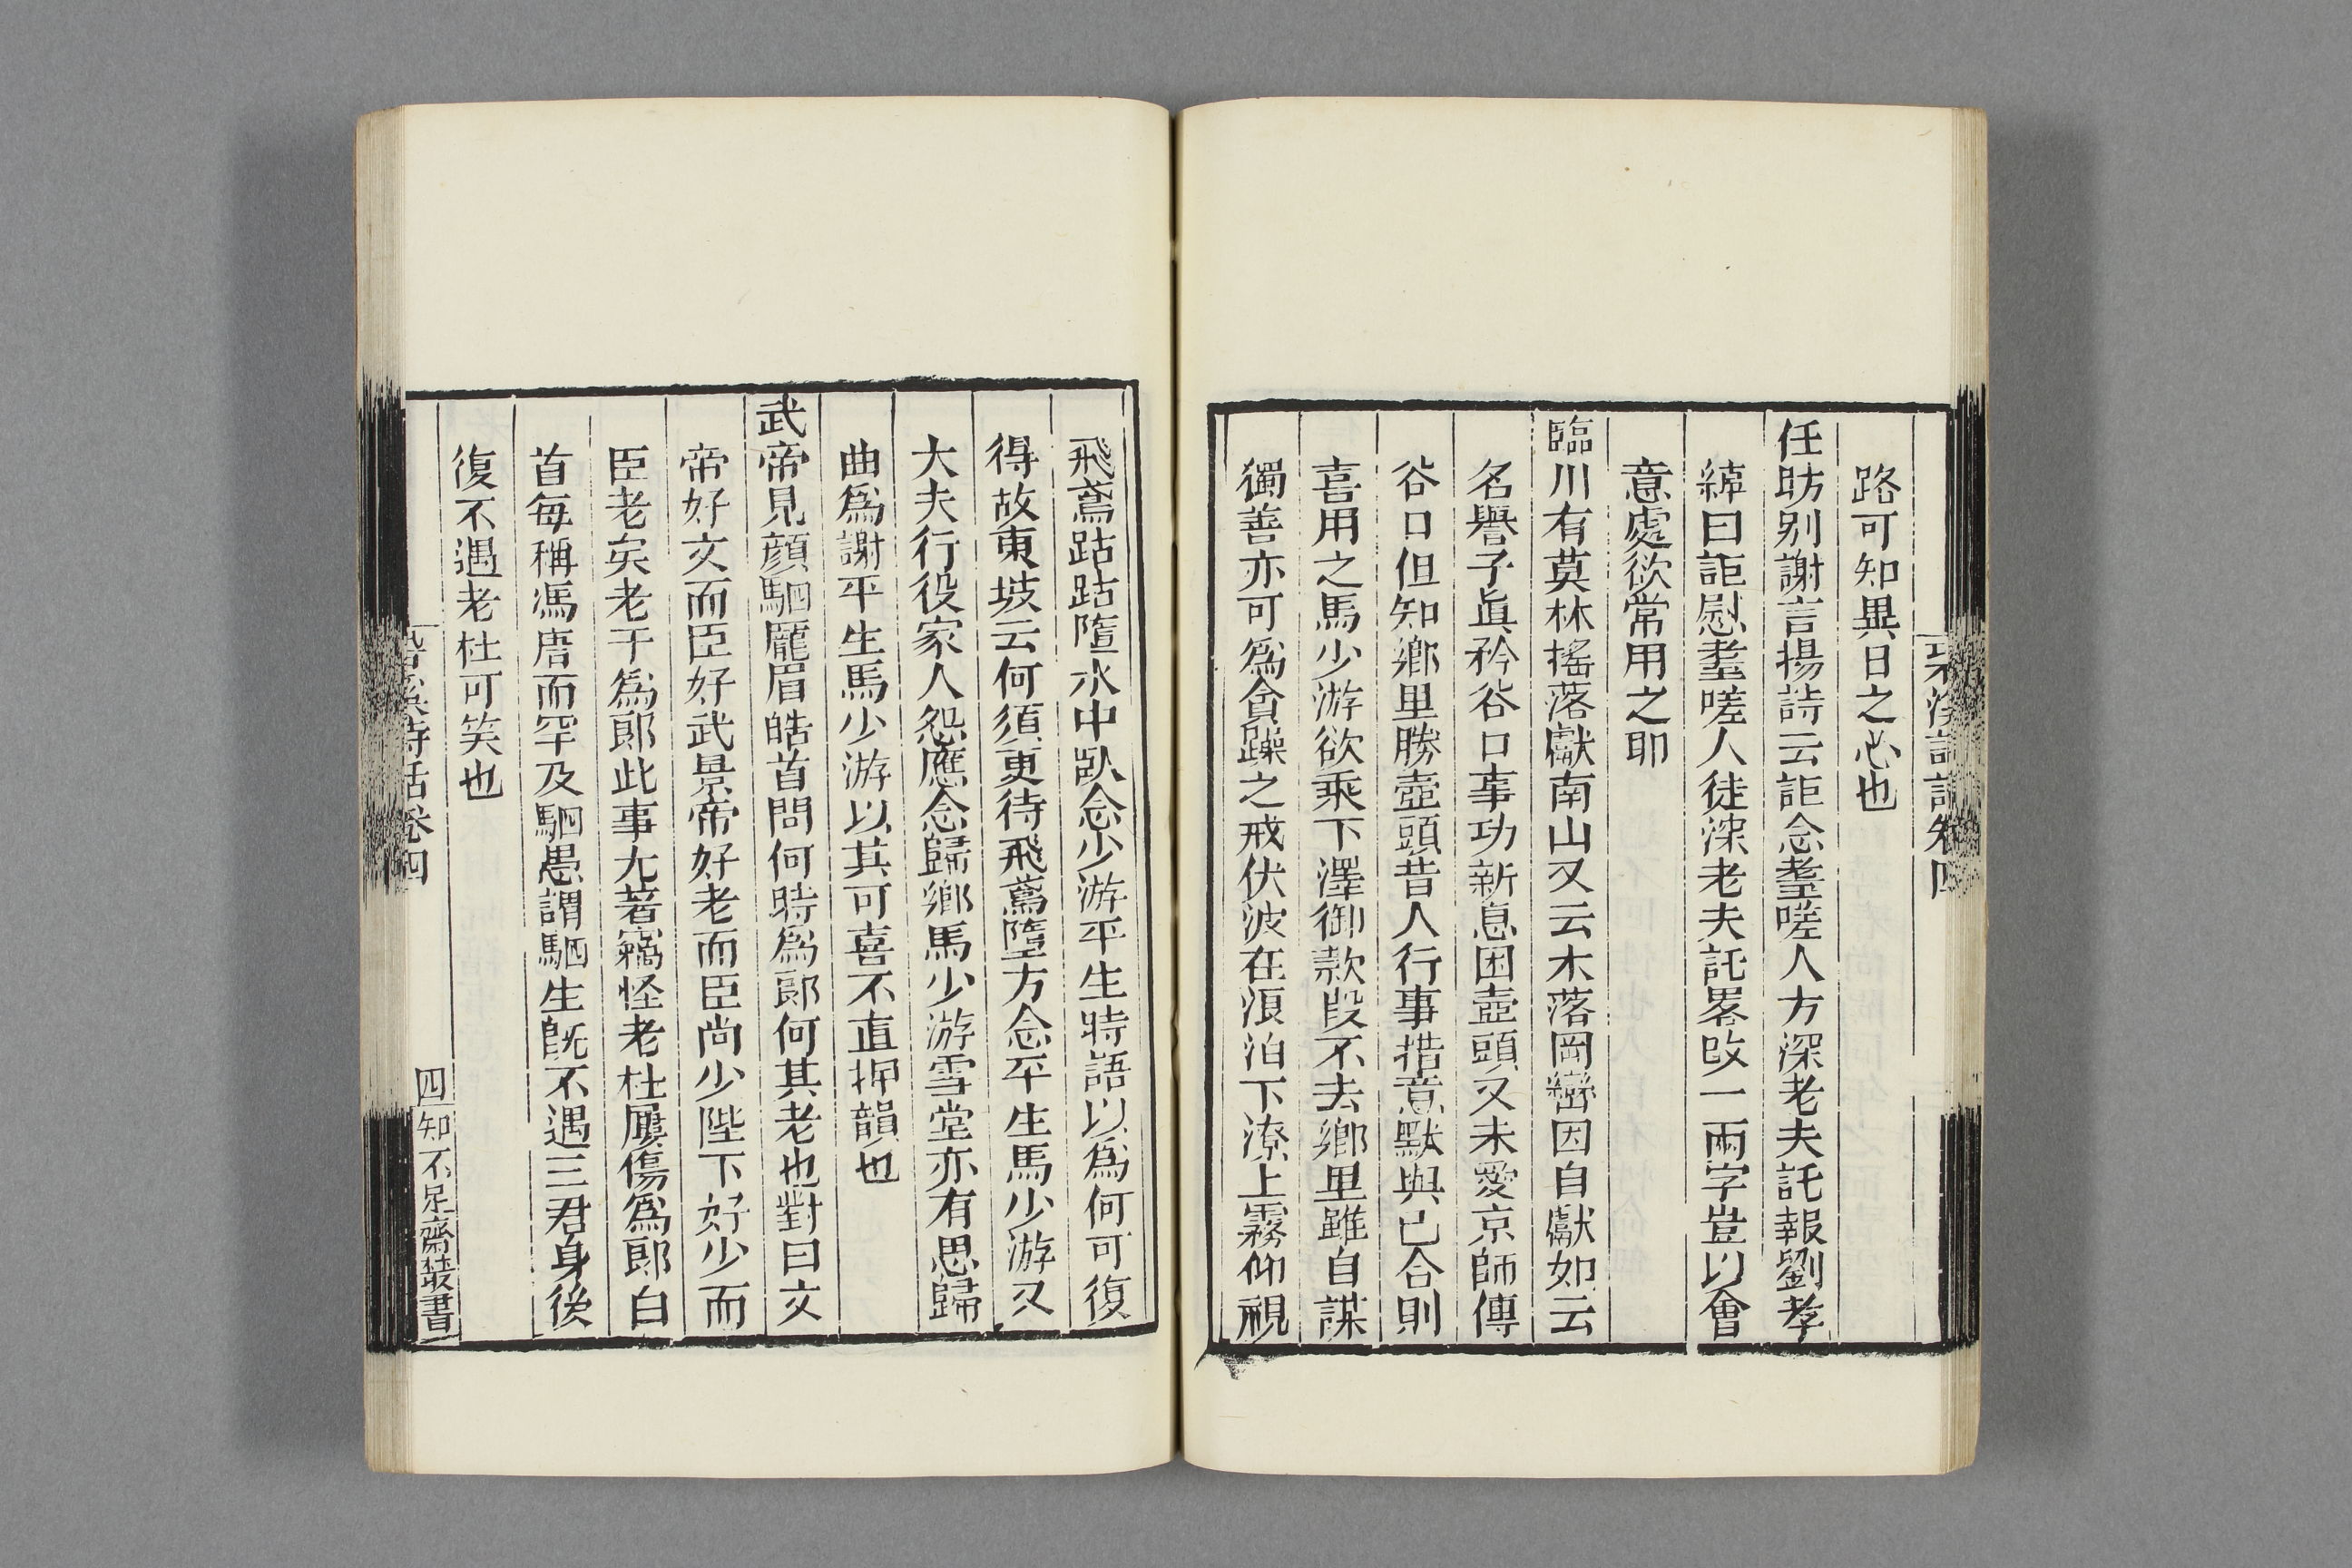 路可知異日之心也
任昉别謝言揚詩云詎念耋嗟人方深老夫託報劉孝
綽曰詎慰耋嗟人徒深老夫託畧改一兩字豈以會
意處欲常用之耶
臨川有莫林搖落獻南山又云木落岡巒因自獻如云
名譽子眞矜谷口事功新息困壺頭又未愛京師傳
谷口但知鄉里勝壺頭昔人行事措意默與已合則
喜用之馬少游欲乘下澤御款段不去鄉里雖自謀
獨善亦可為貪躁之戒伏波在浪泊下潦上霧仰視
飛鳶跕跕墮水中臥念少游平生時語以為何可復
得故東坡云何須更待飛鳶墮方念平生馬少游又
大夫行役家人怨應念歸鄉馬少游雪堂亦有思歸
曲為謝平生馬少游以其可喜不直押韻也
武帝見顔駟龎眉皓首問何時為郎何其老也對曰文
帝好文而臣好武景帝好老而臣尚少陛下好少而
臣老矣老于為郎此事尤著竊怪老杜屢傷為郎白
首每稱馮唐而罕及駟愚謂駟生旣不遇三君身後
復不遇老杜可笑也
詩話卷四
四
知不足齋叢書